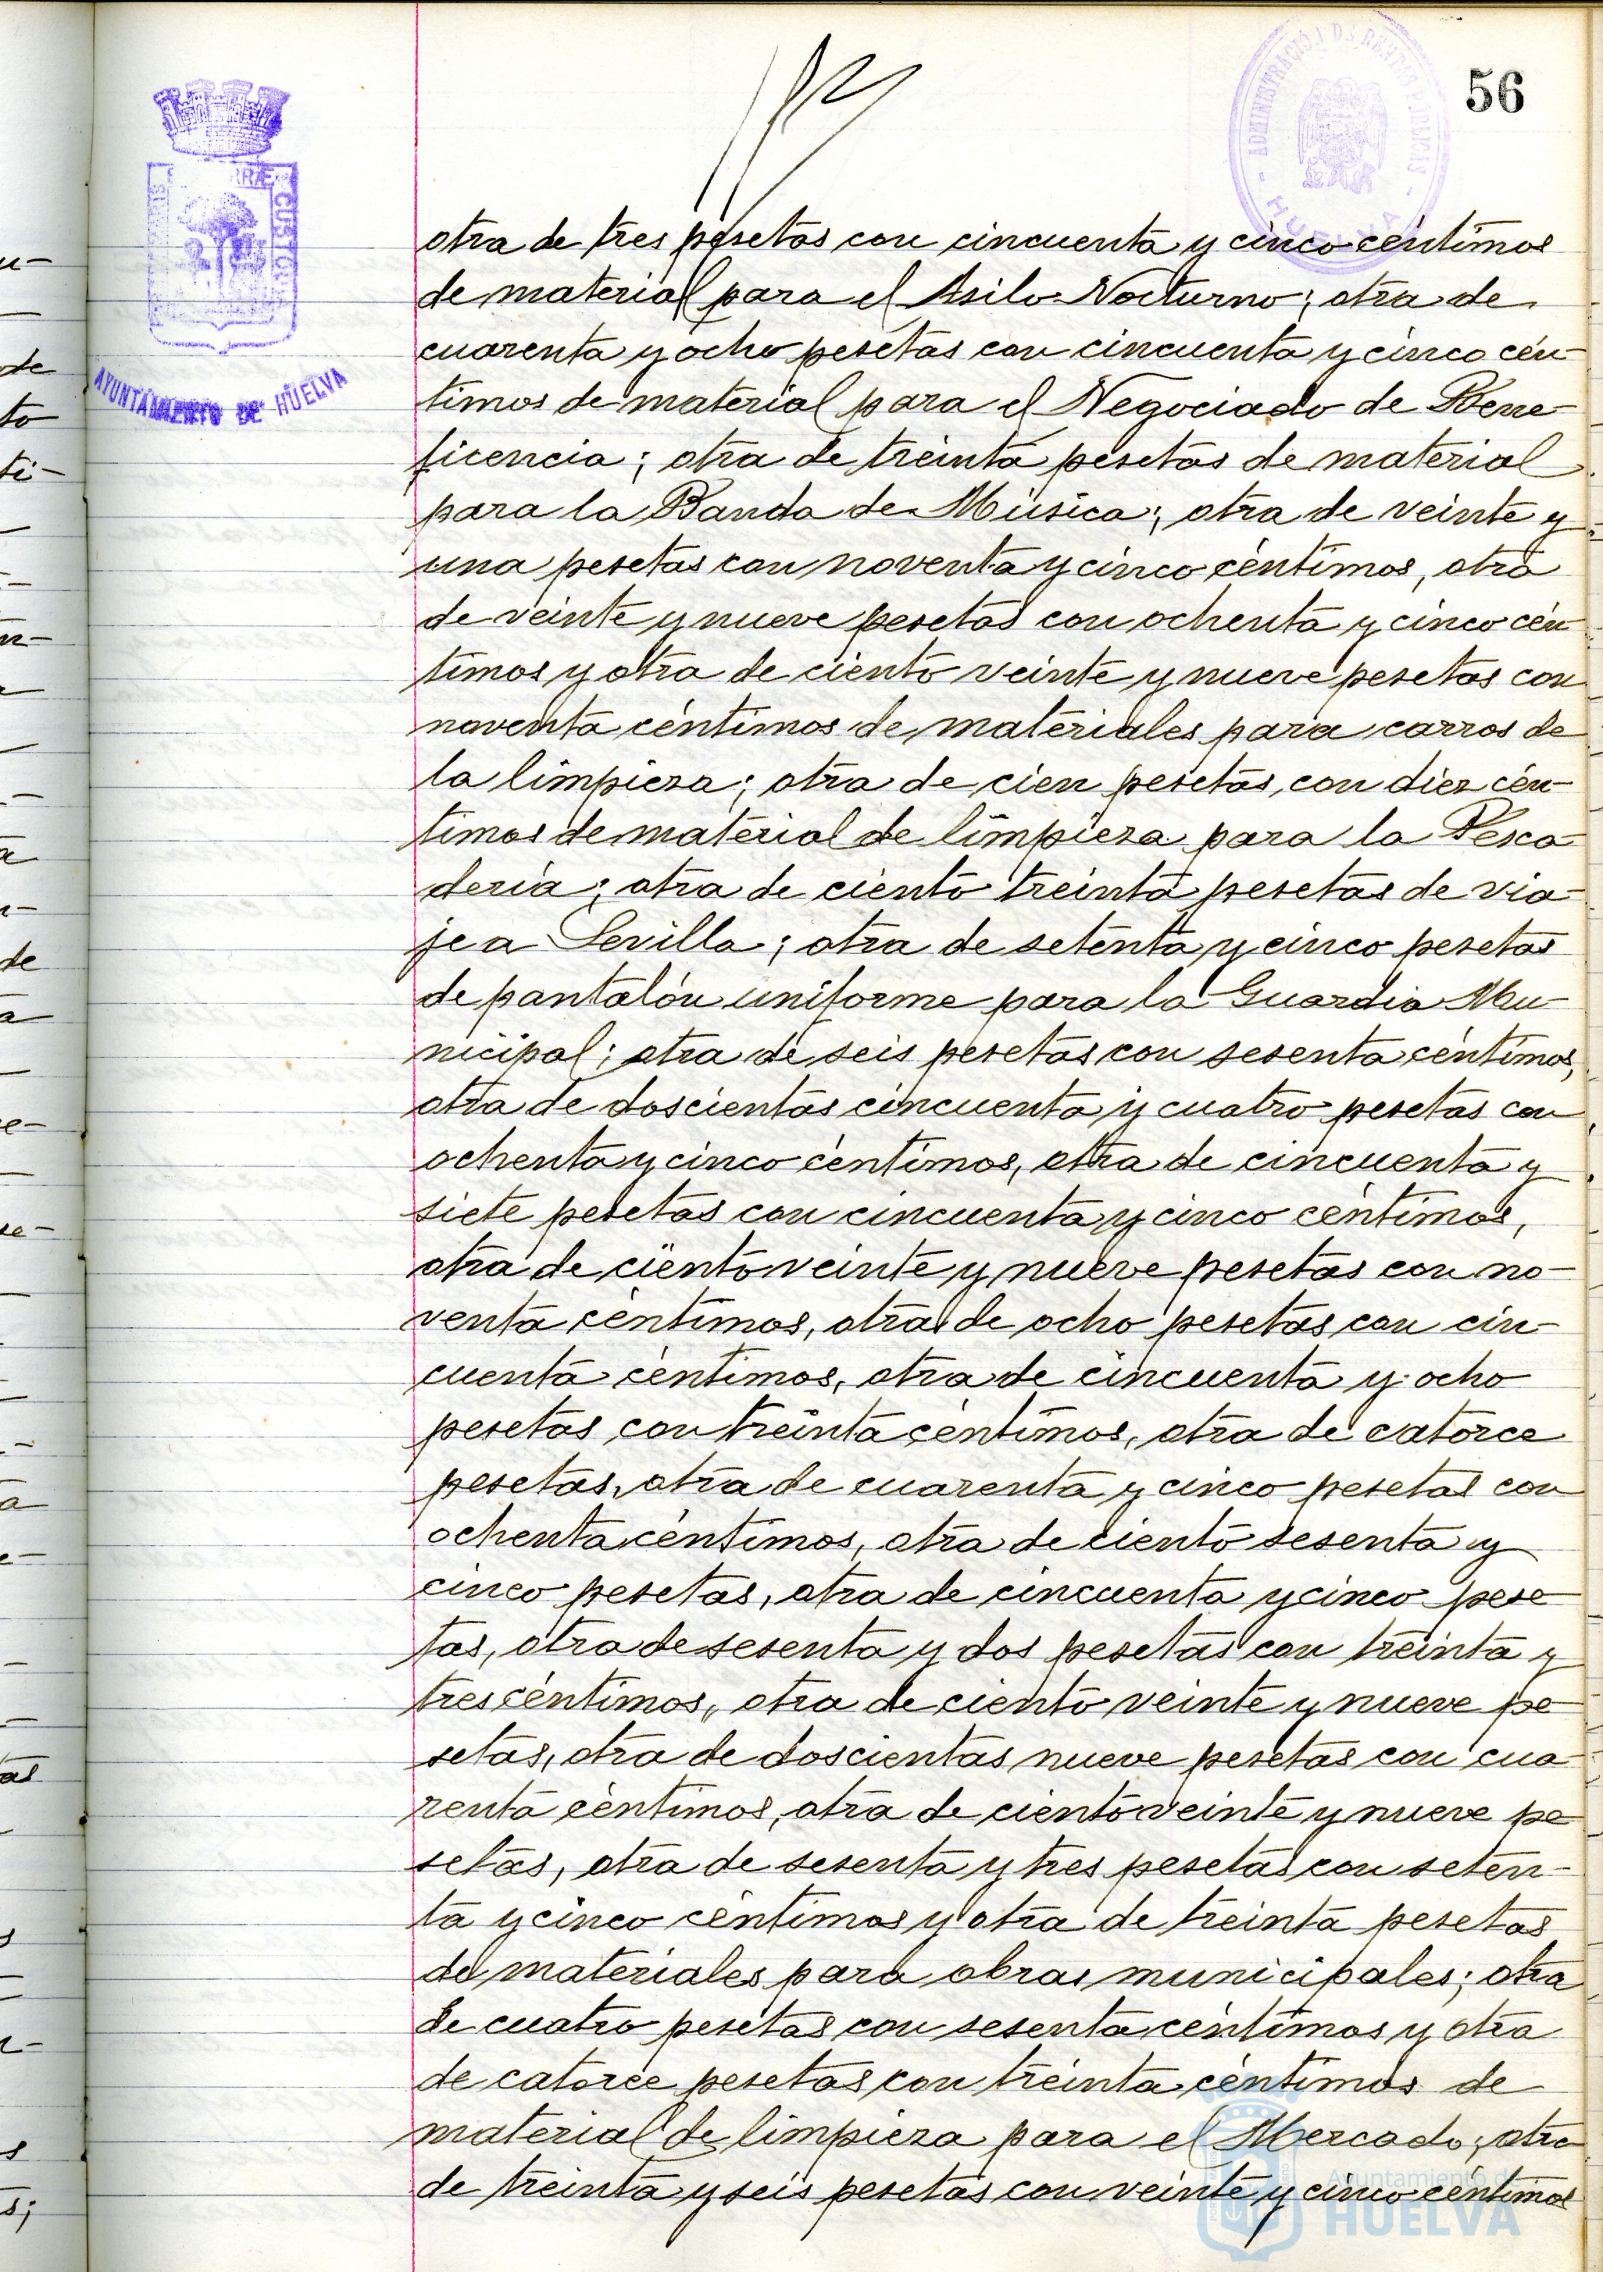 56
ADMINISTRACIÓN DE RENTAS PUBLICAS
- HUELVA -
CUSTO
AYUNTAMIENTO DE HUELVA
otra de tres pesetas con cincuenta y cinco céntimos
de material para el Asilo Nocturno; otra de
cuarenta y ocho pesetas con cincuenta y cinco cén-
timos de material para el Negociado de Bene-
ficencia; otra de treinta pesetas de material
para la Banda de Música; otra de veinte y
una pesetas con noventa y cinco céntimos, otra
de veinte y nueve pesetas con ochenta y cinco cén-
timos y otra de ciento veinte y nueve pesetas con
noventa céntimos de materiales para carros de
la limpieza; otra de cien pesetas, con diez cén-
timos de material de limpieza para la Pesca-
dería; otra de ciento treinta pesetas de via-
je a Sevilla; otra de setenta y cinco pesetas
de pantalón uniforme para la Guardia Mu-
nicipal; otra de seis pesetas con sesenta céntimos,
otra de doscientas cincuenta y cuatro pesetas con
ochenta y cinco céntimos, otra de cincuenta y
siete pesetas con cincuenta y cinco céntimos,
otra de ciento veinte y nueve pesetas con no-
venta céntimos, otra de ocho pesetas con cin-
cuenta céntimos, otra de cincuenta y ocho
pesetas con treinta céntimos, otra de catorce
pesetas, otra de cuarenta y cinco pesetas con
ochenta céntimos, otra de ciento sesenta y
cinco pesetas, otra de cincuenta y cinco pese-
tas, otra de sesenta y dos pesetas con treinta y
tres céntimos, otra de ciento veinte y nueve pe-
setas, otra de doscientas nueve pesetas con cua-
renta céntimos, otra de ciento veinte y nueve pe-
setas, otra de sesenta y tres pesetas con seten-
ta y cinco céntimos y otra de treinta pesetas
de materiales para obras municipales; otra
de cuatro pesetas con sesenta céntimos y otra
de catorce pesetas con treinta céntimos de
material de limpieza para el Mercado; otra
de treinta y seis pesetas con veinte y cinco céntimos
Ayuntamiento de
HUELVA